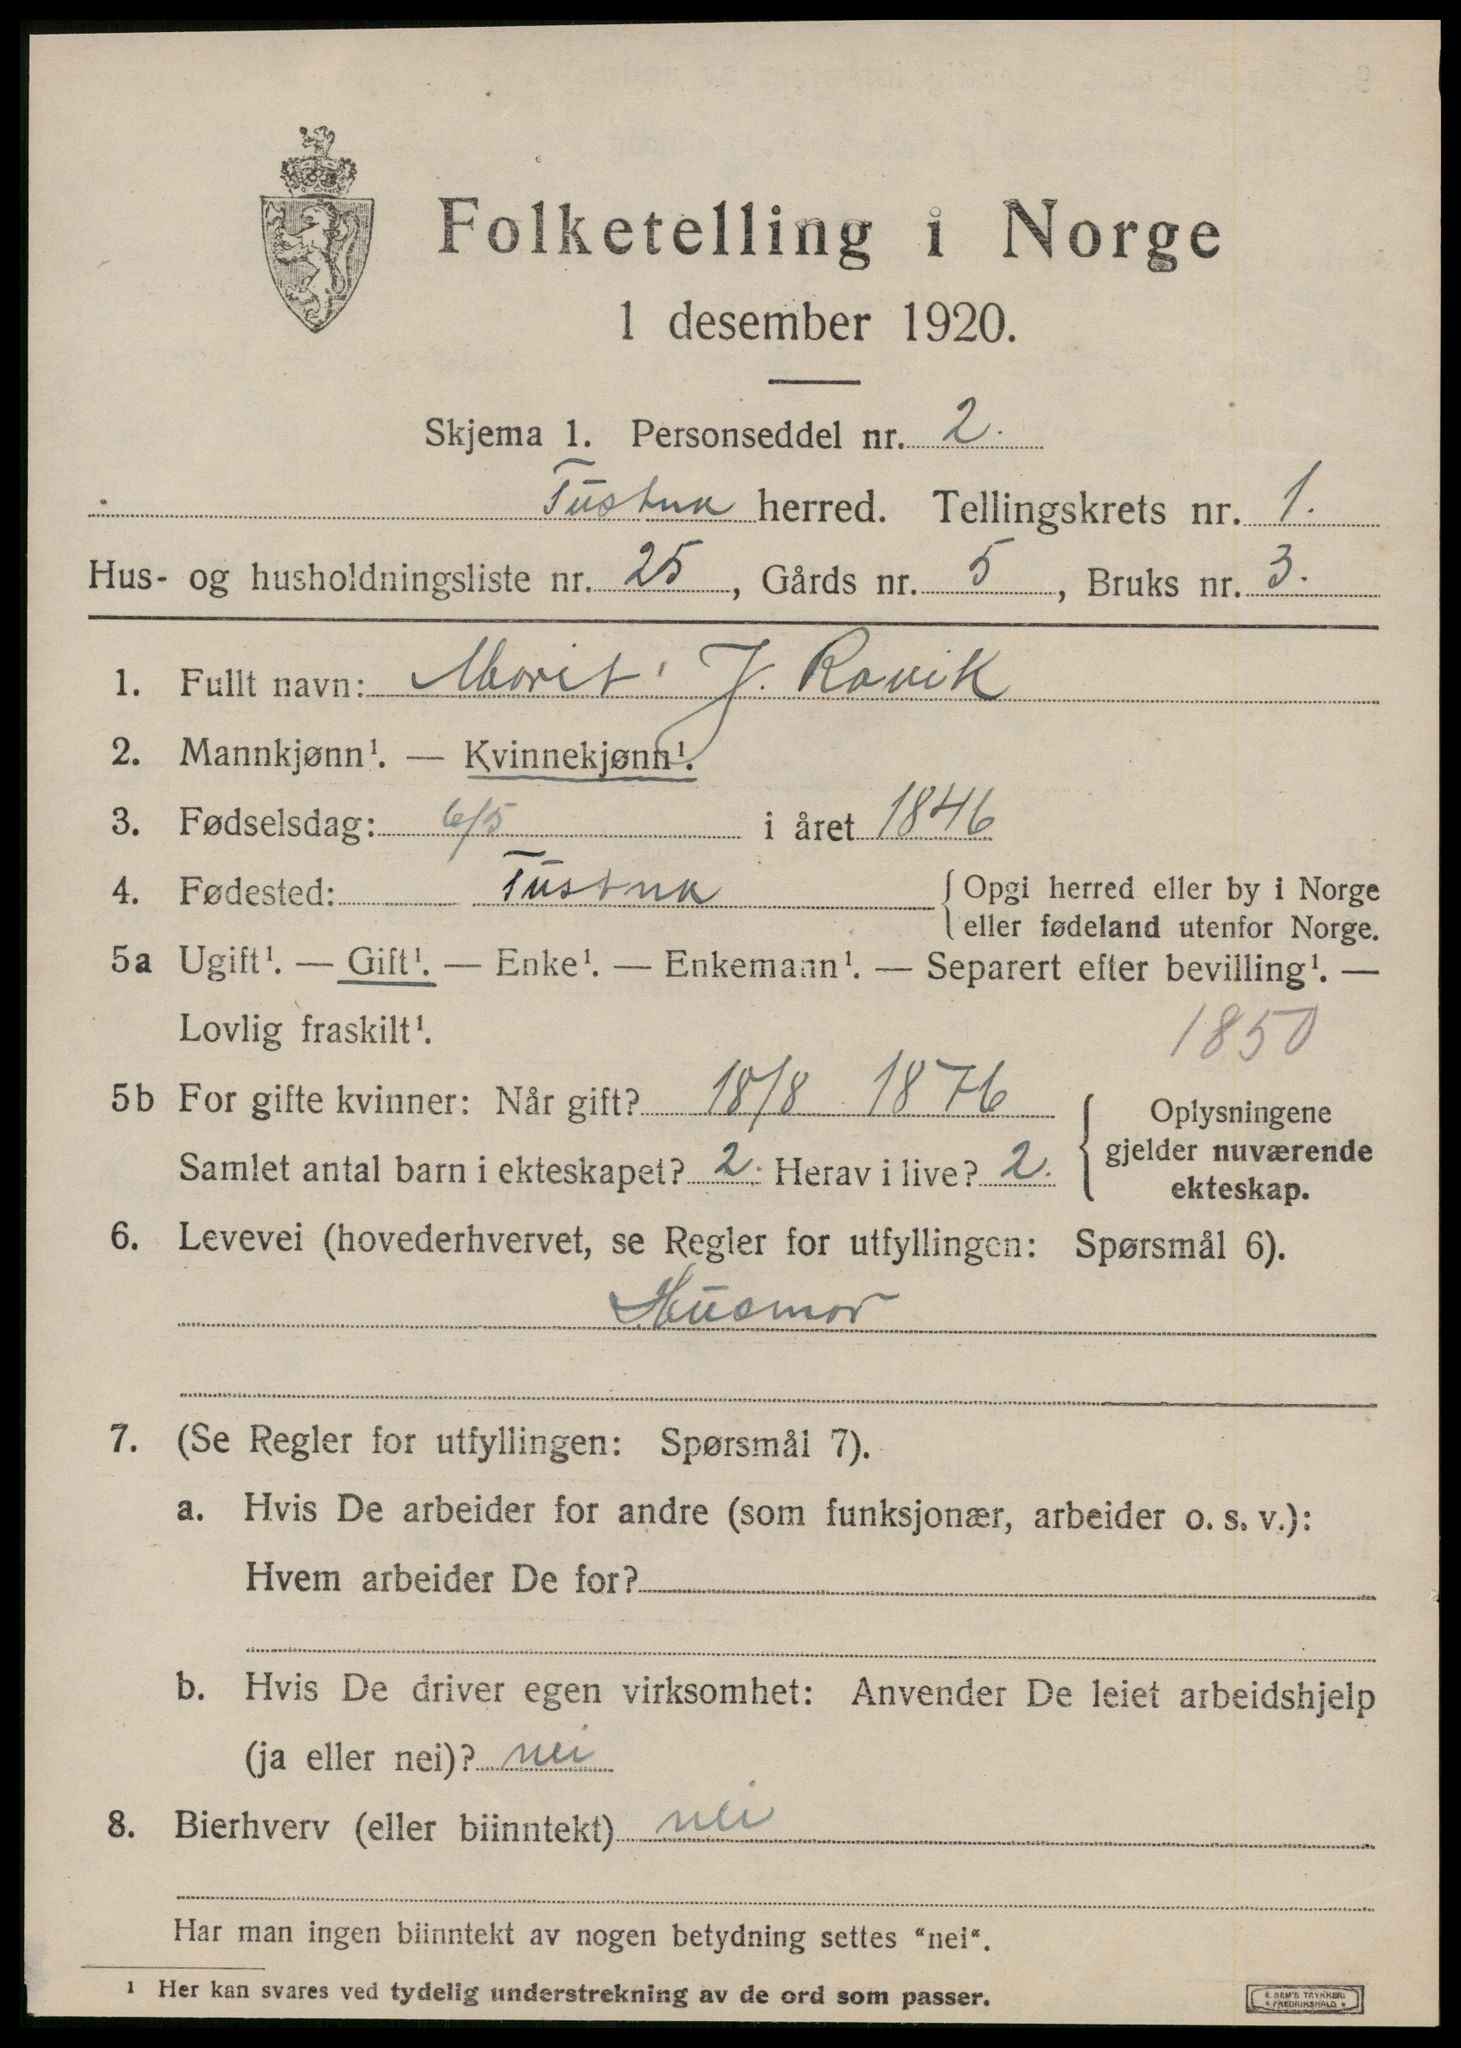 Folketelling i Norge
1 desember 1920.
Skjema 1. Personseddel nr. 2.
Tustna herred. Tellingskrets nr. 1.
Hus- og husholdningsliste nr. 25, Gårds nr. 5, Bruks nr. 3.
1. Fullt navn: Marit J. Rovik
2. Mannkjønn¹. — Kvinnekjønn¹.
3. Fødselsdag: 6/5 i året 1846
4. Fødested: Tustna { Opgi herred eller by i Norge
eller fødeland utenfor Norge.
5a Ugift¹. — Gift¹. — Enke¹. — Enkemann¹. — Separert efter bevilling¹. —
Lovlig fraskilt¹. 1850
5b For gifte kvinner: Når gift? 18/8 1876
Samlet antal barn i ekteskapet? 2. Herav i live? 2.
{ Oplysningene
gjelder nuværende
ekteskap.
6. Levevei (hovederhvervet, se Regler for utfyllingen: Spørsmål 6).
Husmor
7. (Se Regler for utfyllingen: Spørsmål 7).
a. Hvis De arbeider for andre (som funksjonær, arbeider o. s. v.):
Hvem arbeider De for?
b. Hvis De driver egen virksomhet: Anvender De leiet arbeidshjelp
(ja eller nei)? nei
8. Bierhverv (eller biinntekt) nei
Har man ingen biinntekt av nogen betydning settes "nei".
¹ Her kan svares ved tydelig understrekning av de ord som passer.
E. SEM'S TRYKKERI
FREDRIKSHALD